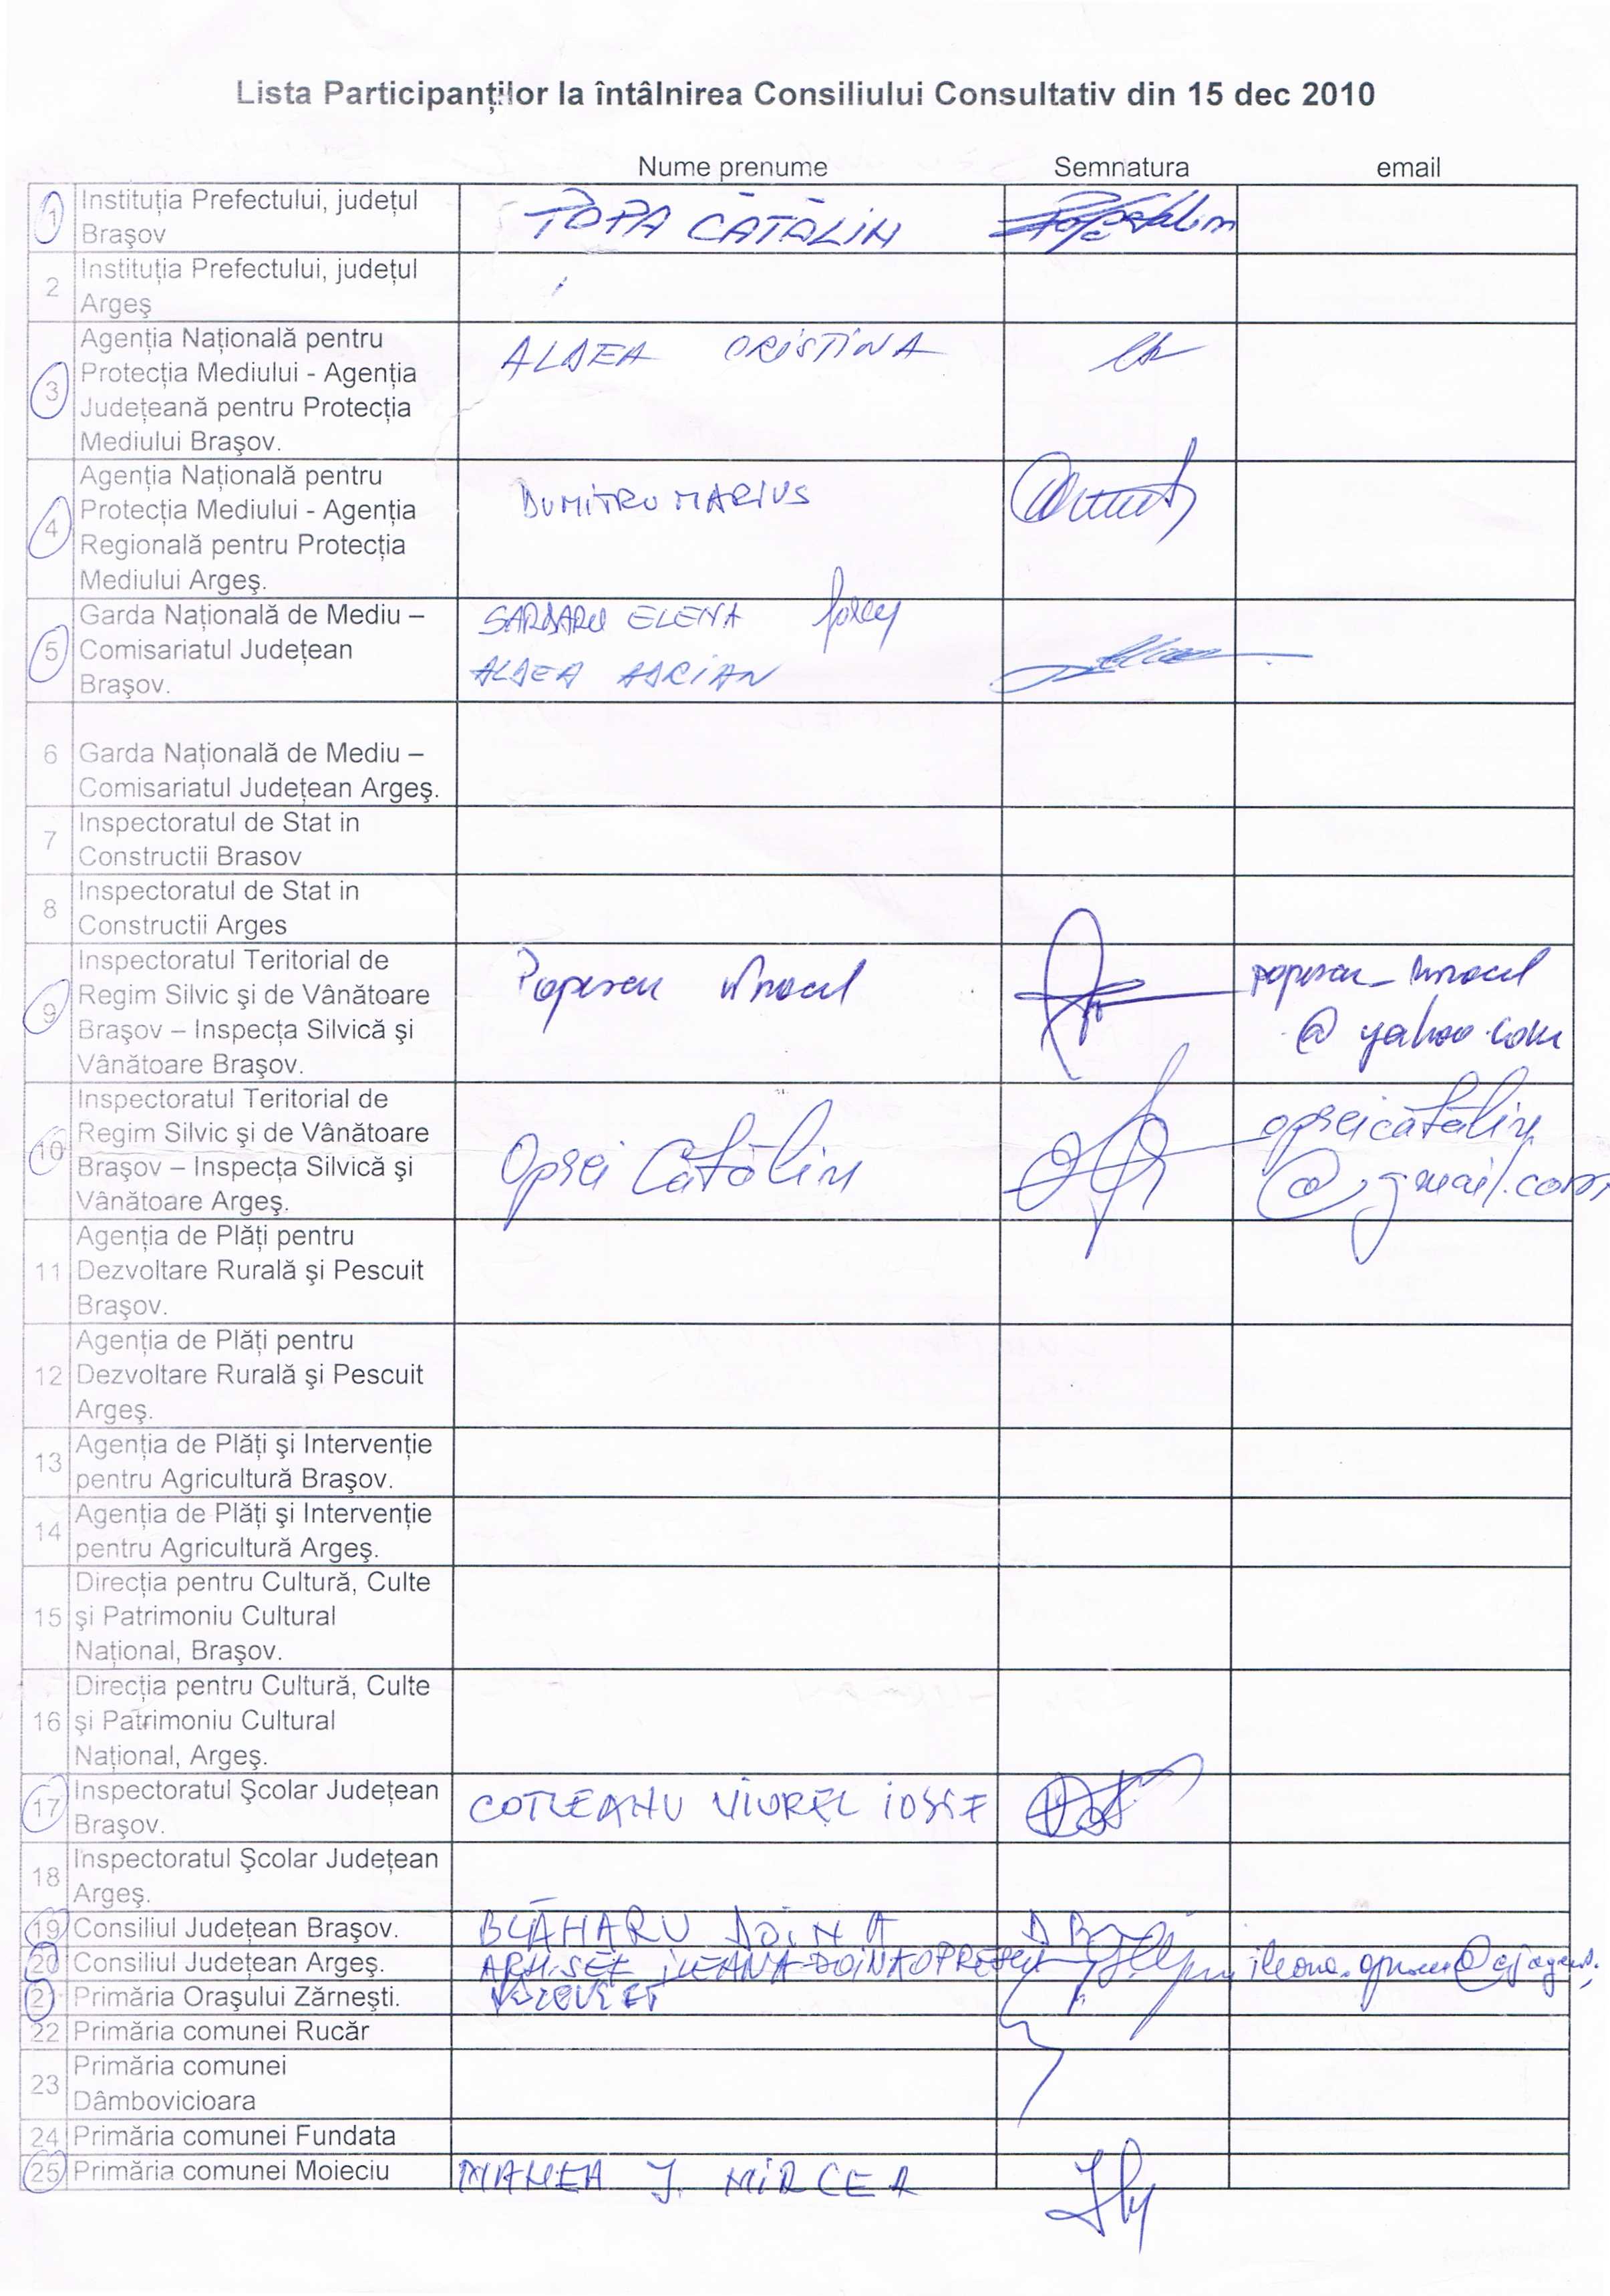 Lista Participanților la întâlnirea Consiliului Consultativ din 15 dec 2010
Nume prenume Semnatura email
1 Instituția Prefectului, județul
Braşov
TOPA CĂTĂLIN
2 Instituția Prefectului, județul
Argeş
3 Agenția Națională pentru
Protecția Mediului - Agenția
Județeană pentru Protecția
Mediului Braşov.
ALDEA CRISTINA
4 Agenția Națională pentru
Protecția Mediului - Agenția
Regională pentru Protecția
Mediului Argeş.
DUMITRU MARIUS
5 Garda Națională de Mediu –
Comisariatul Județean
Braşov.
SARBARU ELENA
ALDEA ADRIAN
6 Garda Națională de Mediu –
Comisariatul Județean Argeş.
7 Inspectoratul de Stat in
Constructii Brasov
8 Inspectoratul de Stat in
Constructii Arges
9 Inspectoratul Teritorial de
Regim Silvic şi de Vânătoare
Braşov – Inspecța Silvică şi
Vânătoare Braşov.
Popescu
@ yahoo.com
10 Inspectoratul Teritorial de
Regim Silvic şi de Vânătoare
Braşov – Inspecța Silvică şi
Vânătoare Argeş.
Oprei Cătălin
opreicătălin
@gmail.com
11 Agenția de Plăți pentru
Dezvoltare Rurală şi Pescuit
Braşov.
12 Agenția de Plăți pentru
Dezvoltare Rurală şi Pescuit
Argeş.
13 Agenția de Plăți şi Intervenție
pentru Agricultură Braşov.
14 Agenția de Plăți şi Intervenție
pentru Agricultură Argeş.
15 Direcția pentru Cultură, Culte
şi Patrimoniu Cultural
Național, Braşov.
16 Direcția pentru Cultură, Culte
şi Patrimoniu Cultural
Național, Argeş.
17 Inspectoratul Şcolar Județean
Braşov.
COTLEANU VIOREL IOSIF
18 Inspectoratul Şcolar Județean
Argeş.
19 Consiliul Județean Braşov. BLĂHARU DOINA
20 Consiliul Județean Argeş. ILEANA-DOINA OPRESCU
21 Primăria Oraşului Zărneşti.
22 Primăria comunei Rucăr
23 Primăria comunei
Dâmbovicioara
24 Primăria comunei Fundata
25 Primăria comunei Moieciu MANEA J. MIRCEA